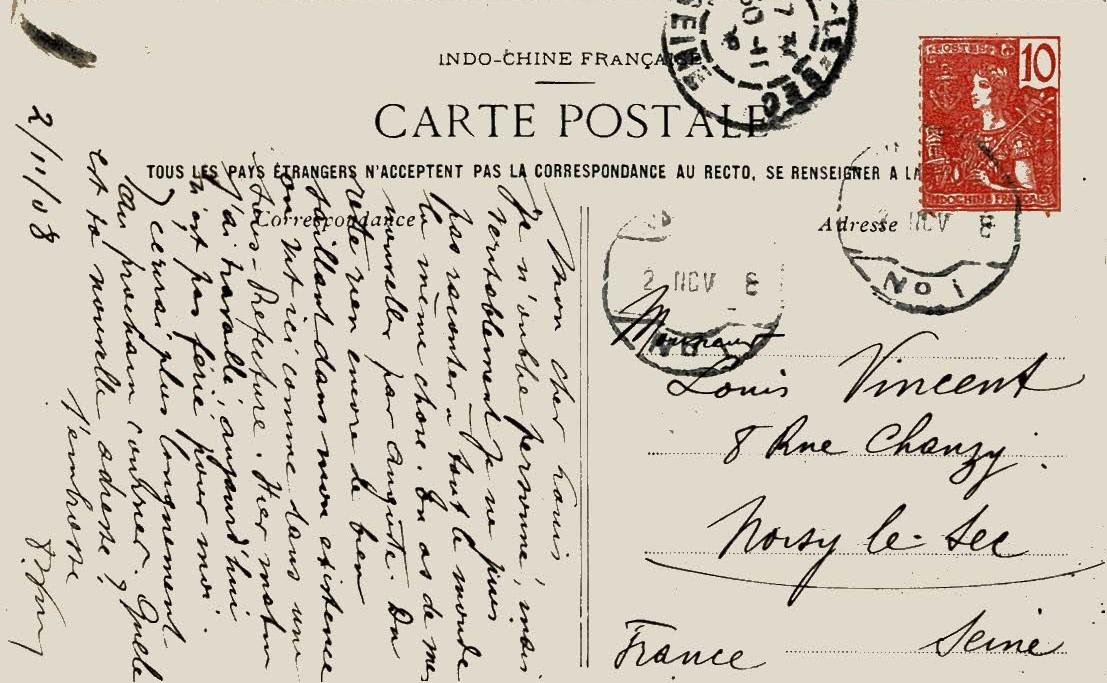 INDO-CHINE FRANÇAISE
CARTE POSTALE
TOUS LES PAYS ÉTRANGERS N'ACCEPTENT PAS LA CORRESPONDANCE AU RECTO, SE RENSEIGNER A LA
Correspondance
Adresse
POSTES
10
INDOCHINE FRANÇAISE
-LE-SEC
SEINE
2 NOV 8
NOV 8
NOI
Monsieur
Louis Vincent
8 Rue Chanzy.
Noisy le Sec
Seine
France
Mon cher Louis
Je n'oublie personne, mais
véritablement je ne puis
pas raconter à tout le monde
la même chose. Tu as de mes
nouvelles par Auguste. Du
reste rien encore de bien
saillant dans mon existence
on vit ici comme dans une
Sous-Préfecture. Hier matin
j'ai travaillé aujourd'hui
n'est pas férié pour moi.
J'écrirai plus longuement
au prochain courrier. Quelle
est ta nouvelle adresse ?
J'embrasse
2/11/08